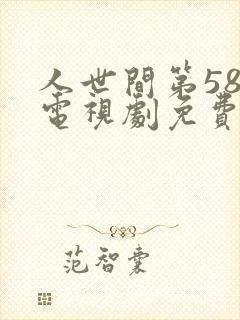 人世間第58
電視劇免費
范智橐